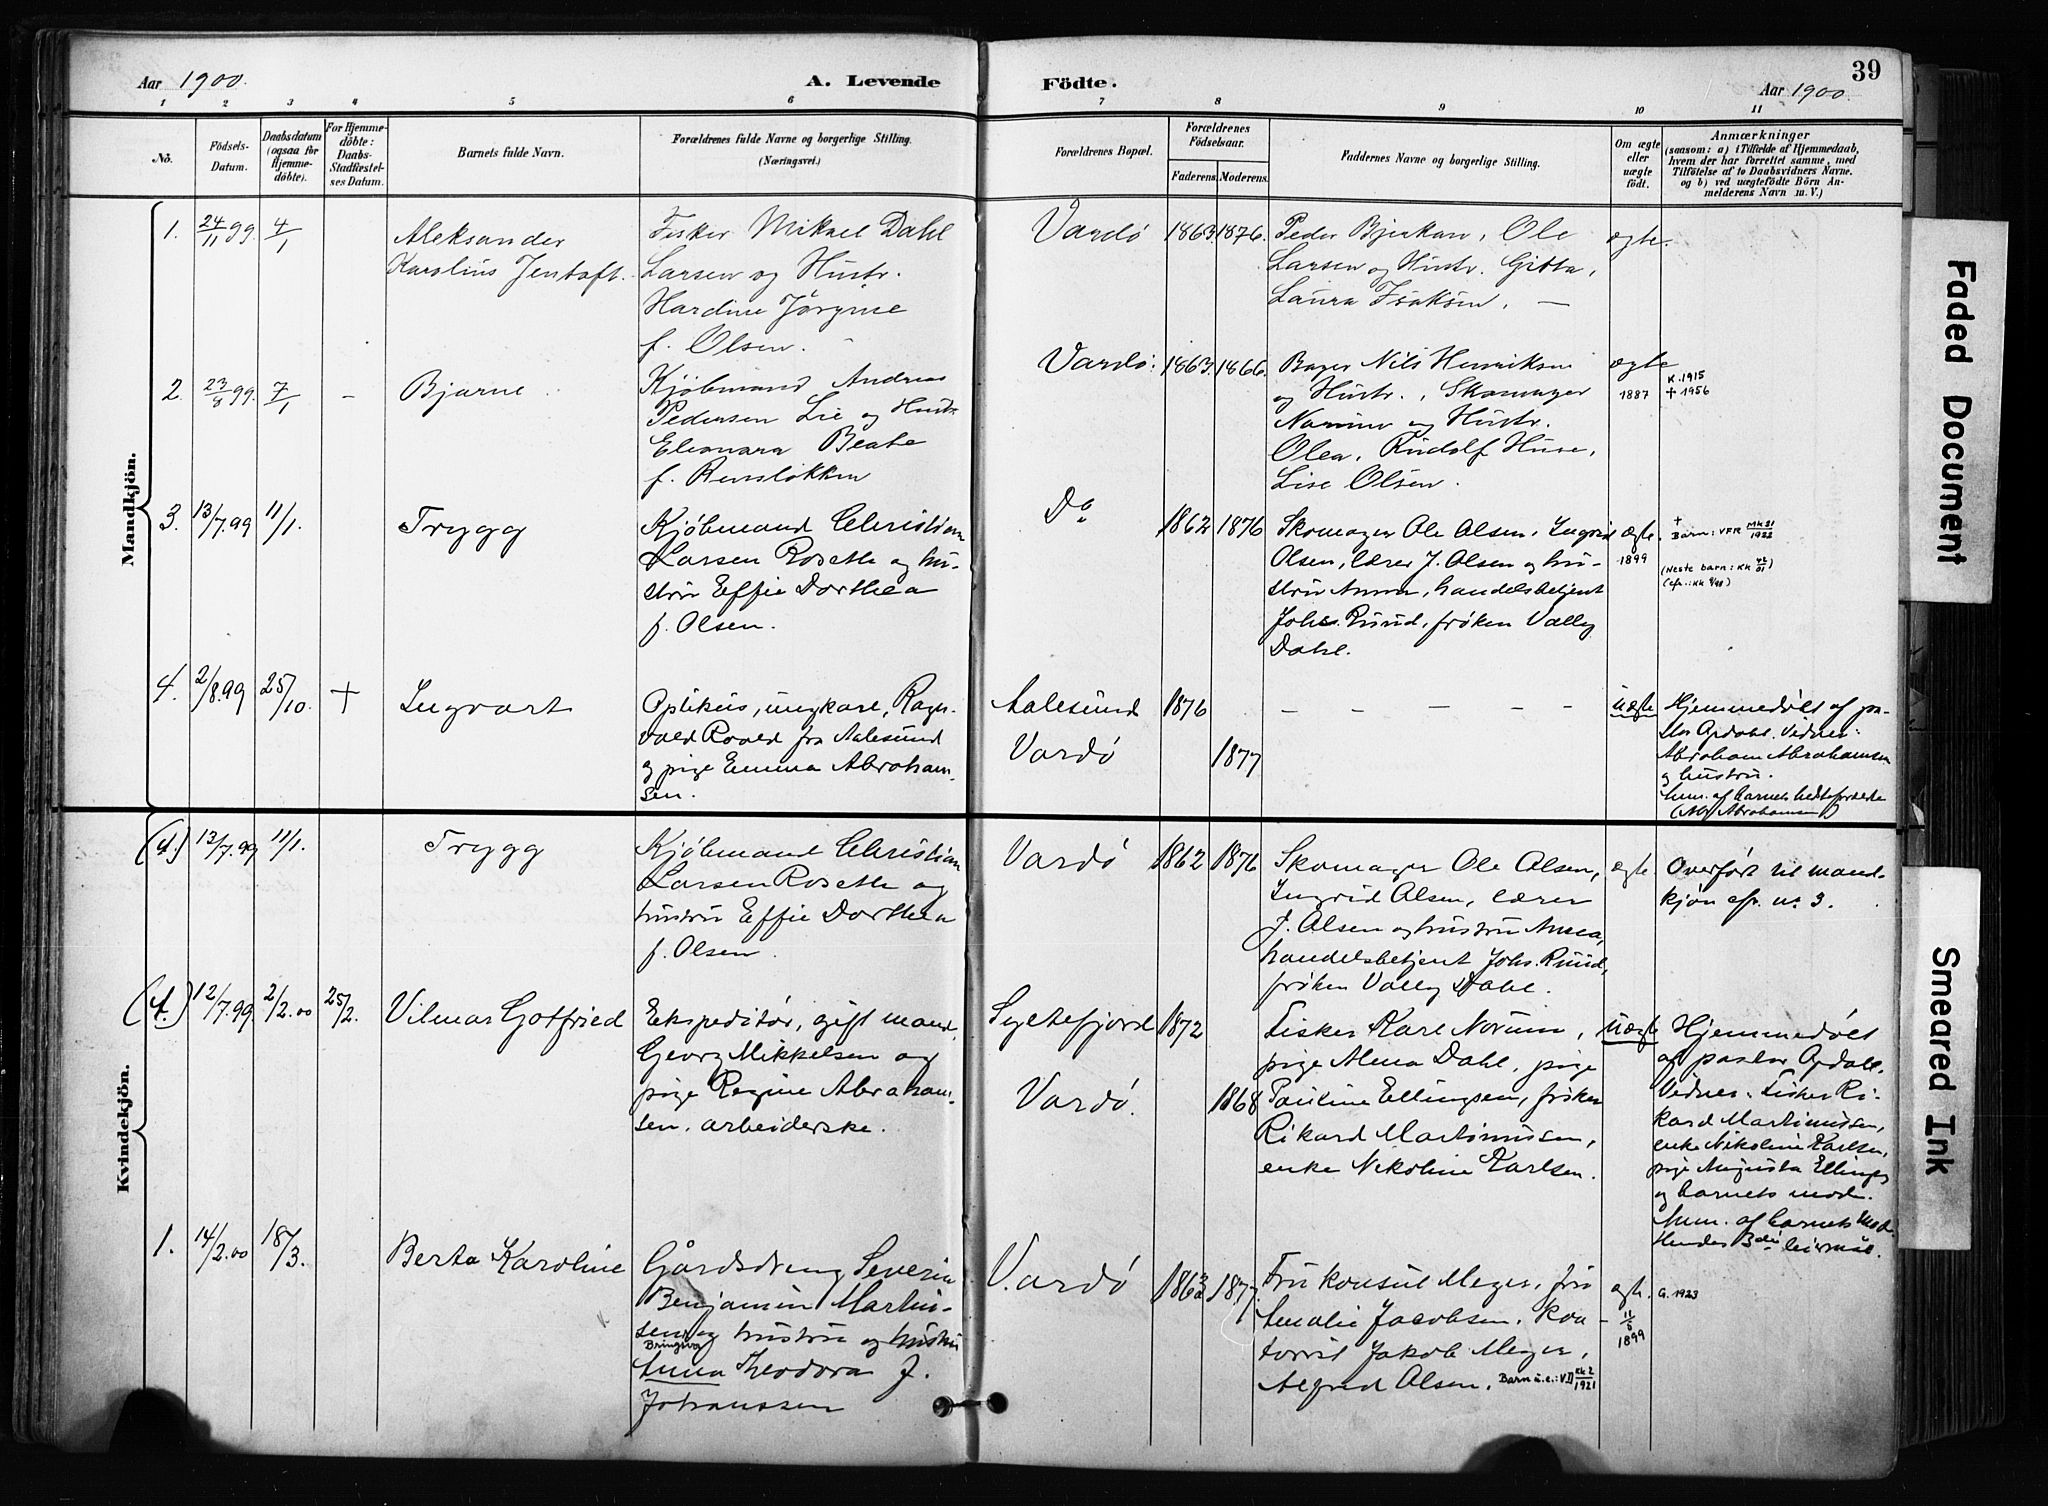 39
Aar 1900.
A. Levende
Födte.
Aar 1900.
1 2 3 4 5 6 7 8 9 10 11
No.
Födsels-
Datum.
Daabsdatum
(ogsaa for
Hjemme-
döbte).
For Hjemme-
döbte:
Daabs-
Stadfæstel-
ses Datum.
Barnets fulde Navn.
Forældrenes fulde Navne og borgerlige Stilling.
(Næringsvei.)
Forældrenes Bopæl.
Forældrenes
Födselsaar.
Faderens. Moderens.
Faddernes Navne og borgerlige Stilling.
Om ægte
eller
uægte
födt.
Anmærkninger
(saasom: a) i Tilfælde af Hjemmedaab,
hvem der har forrettet samme, med
Tilföielse af to Daabsvidners Navne.
og b) ved uægtefödte Börn An-
melderens Navn m. V.)
Mandkjön.
1.
24/11 99.
4/1
Aleksander
Karolius Jentoft.
Fisker Mikael Dahl
Larsen og Hustr.
Hardine Jörgine
f. Olsen.
Vardö
1863.
1876.
Peder Bjerkan, Ole
Larsen og Hustr. Gitta,
Laura Isaksen. —
ægte.
2.
23/8 99.
7/1
-
Bjarne
Kjöbmand Andreas
Pedersen Lie og Hustr.
Eleonara Beate
f. Rensløkken
Vardö.
1863.
1866.
Bager Nils Henriksen
og Hustr., Skomager
og Hustr.
Olea, Rudolf Huse,
Lise Olsen.
ægte
1887
K. 1915
+ 1956
3.
13/7.99
11/1.
Trygg
Kjøbmand Christian
Larsen Roseth og hu-
stru Effie Dorthea
f. Olsen.
Do
1862
1876
Skomager Ole Olsen, Ingrid
Olsen, lærer J. Olsen og hu-
stru Anna, handelsbetjent
Johs. Ruud, frøken Vally
Dahl.
ægte.
1899
+
Barn: VFR Mk 21/1922
(Neste barn: KK 42/01)
4.
2/8.99
25/10.
+
Ingvart
Optikus, ungkarl, Ragn-
vald Roald fra Aalesund
og pige Emma Abraham-
sen.
Aalesund
Vardø
1876
1877
— — — — —
uægte
Hjemmedøbt af pa-
stor Opdahl. Vidner:
Abraham Abrahamsen
og hustru.
Anm. af barnets bedsteforældre
Kvindekjön.
(4.)
13/7.99
11/1.
Trygg
Kjøbmand Christian
Larsen Roseth og
hustru Effie Dorthea
f. Olsen.
Vardø
1862
1876
Skomager Ole Olsen,
Ingrid Olsen, lærer
J. Olsen og hustru Anna,
handelsbetjent Johs. Ruud,
frøken Vally Dahl.
ægte.
Overført til mand-
kjøn efr. no 3.
(4.)
12/7.99
2/2.00
25/2.
Vilmar Gotfried
Ekspeditør, gift mand,
Georg Mikkelsen og
pige Regine Abraham-
sen, arbeiderske.
Syltefjord
Vardø.
1872
1868
Fisker Karl Norum,
pige Alma Dahl, pige
Pauline Ellingsen, fisker
Rikard Martinusen,
enke Nikoline Karlsen.
uægte
Hjemmedøbt
af pastor Opdahl.
Vidner: Fisker Ri-
kard Martinusen,
enke Nikoline Karlsen,
pige Augusta Ellingsen
og barnets moder.
Anm. af barnets moder.
Hendes 3die leiermål.
1.
14/2.00
18/3.
Berta Karoline
Gårdsdreng Severin
Benjamin Martin-
sen og hustru og hustru
Bringsvor
Anna Theodora f.
Johanssen
Vardø
1863
1877.
Fru konsul Meyer, fru
Amalie Jacobsen, kon-
torist Jakob Meyer,
Algred Olsen. Barn u.e.: VD KK 2/1921
ægte.
11/6
1899
G. 1923
Faded Document
Smeared Ink